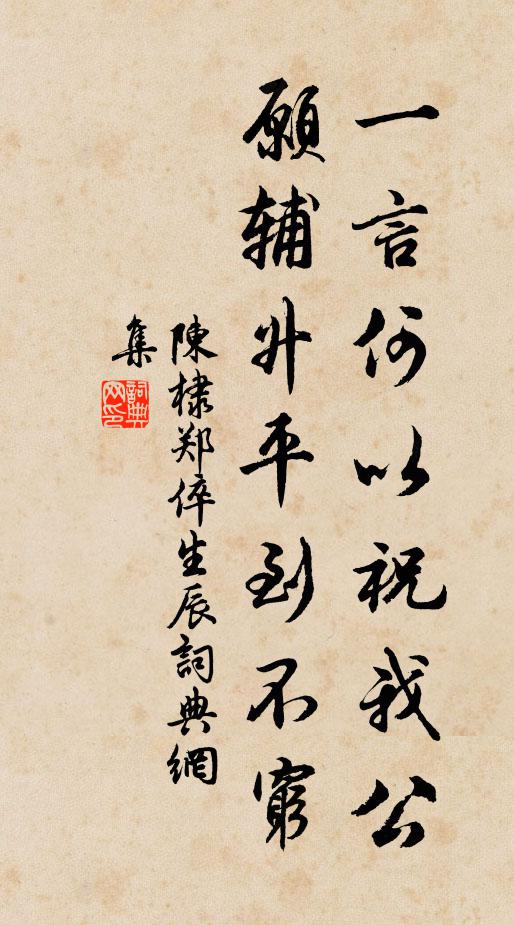 一言何以祝我公
願辅升平到不窮
陳棣郑倅生辰詞典網
集
詞典
网印